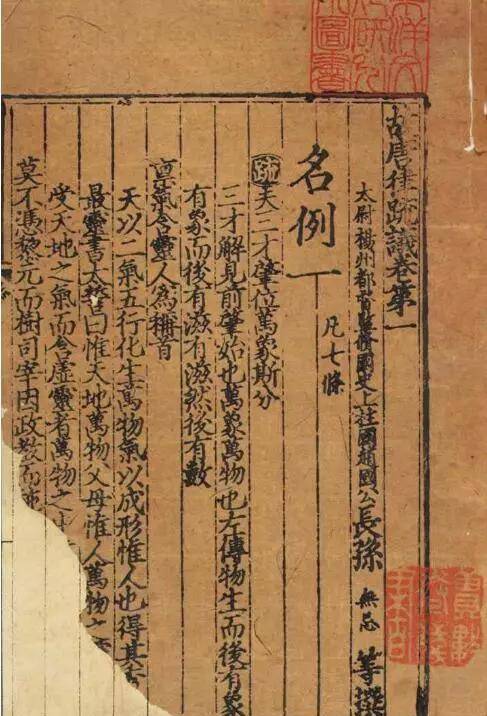 故唐律疏議卷第一
太尉揚州都督監脩國史上柱國趙國公長孫無忌等撰
名例一
凡七條
疏夫三才肇位萬象斯分
三才解見前肇始也萬象萬物也左傳物生而後有象
有象而後有滋有滋然後有數
稟氣含靈人為稱首
天以二氣五行化生萬物氣以成形惟人也得其
最靈書太誓曰惟天地萬物父母惟人萬物之
受天地之氣而含虛靈者萬物之
莫不憑黎元而樹司宰因政教而
圖書